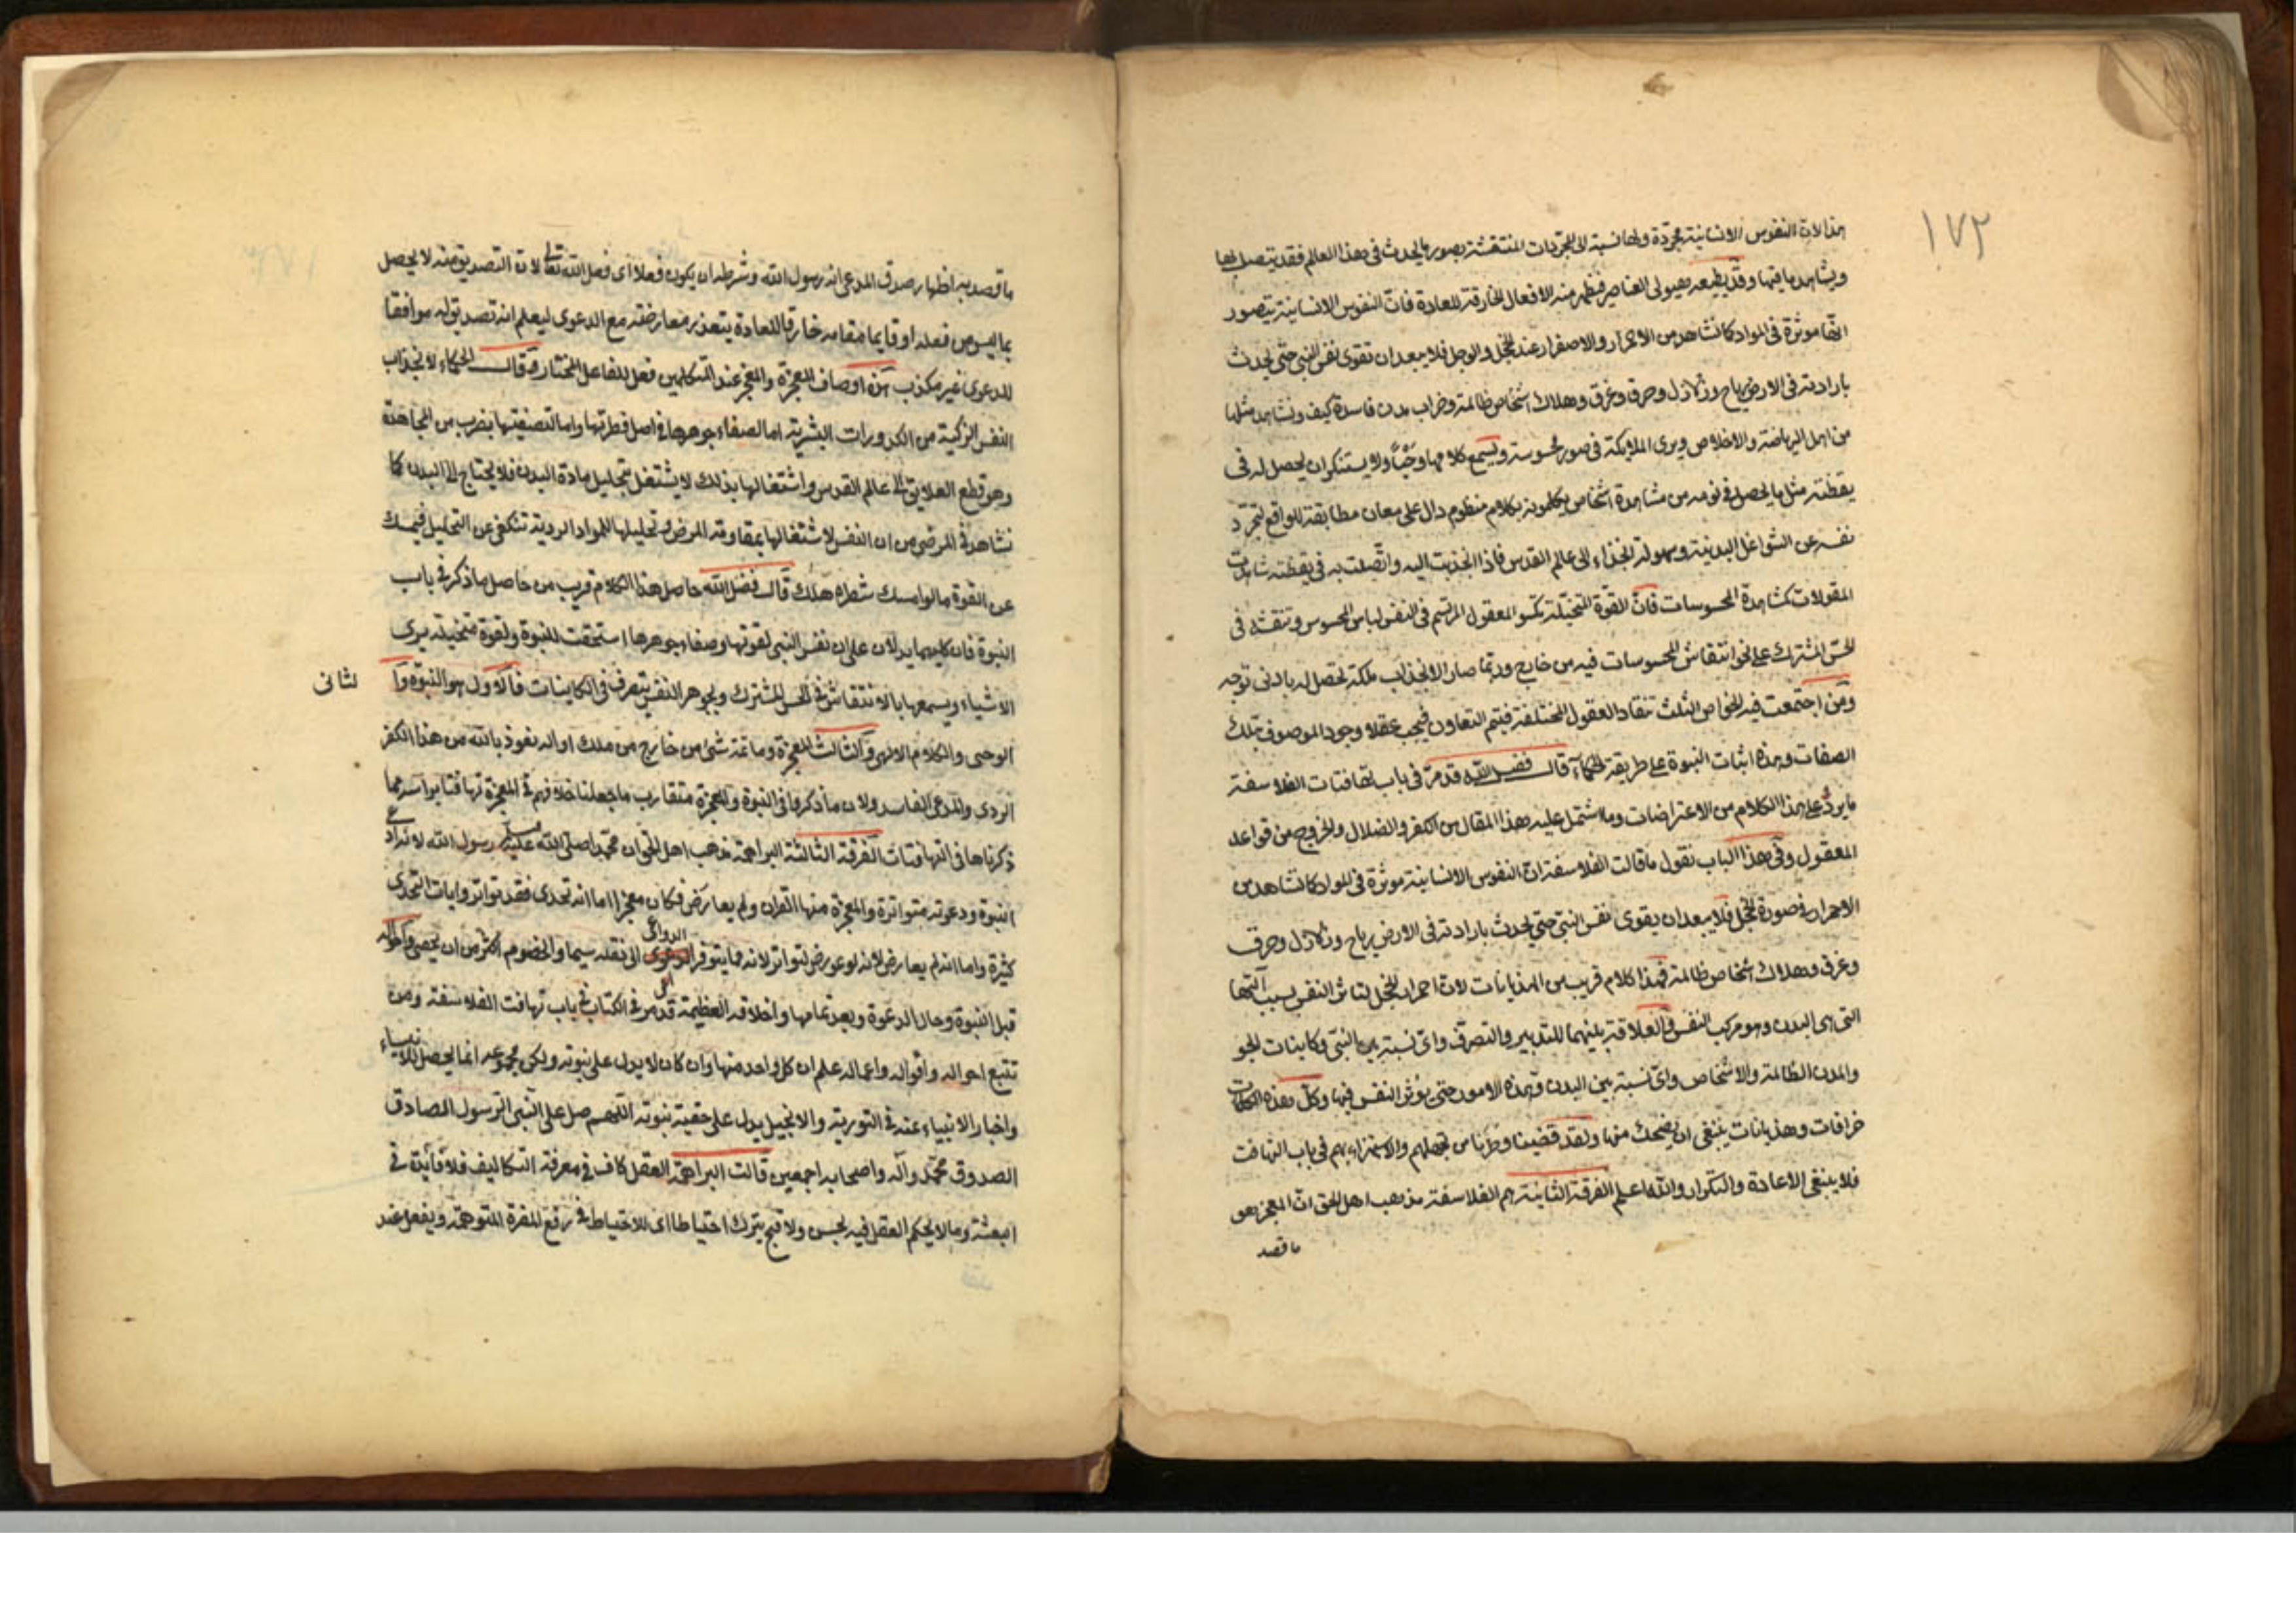 ١٧٢
هذا لان النفوس الانسانية مجردة ولها نسبة الى المجردات المنتقشة بصور ما يحدث فى هذا العالم فقد يتصل بها
ويشاهد ما فيها وقد يطيعه هيولى العناصر فيظهر منه الافعال الخارقة للعادة فان النفوس الانسانية بتصور
اتها موثرة فى المواد كما نشاهد من الاحمرار والاصفرار عند الخجل والوجل فلا يبعد ان تقوى نفس النبى حتى يحدث
بارادته فى الارض رياح وزلازل وحرق وغرق وهلاك اشخاص ظالمة وخراب مدن فاسدة كيف ونشاهد مثلها
من اهل الرياضة والاخلاص ويرى الملائكة فى صور محسوسة ويسمع كلامها وحيا ولا يستنكر ان يحصل له فى
يقظته مثل ما يحصل فى نومه من مشاهدة اشخاص يكلمونه بكلام منظوم دال على معان مطابقة للواقع لتجرد
نفسه عن الشواغل البدنية وسهولة انجذابه الى عالم القدس فاذا انجذبت اليه واتصلت به فى يقظته شاهدت
المقولات كمشاهدة المحسوسات فان القوة المتخيلة تكسو المعقول المرتسم فى النفس لباس المحسوس وتنقشه فى
الحس المشترك على نحو انتقاش المحسوسات فيه من خارج وربما صار الانجذاب ملكة تحصل له بادنى توجه
ومن اجتمعت فيه الخواص الثلث تنقاد العقول المختلفة فيتم التعاون فيجب عقلا وجود الموصوف بتلك
الصفات وهذه اثبات النبوة على طريقة الحكماء قال فضل الله قد مر فى باب تهافتات الفلاسفة
ما يرد على هذا الكلام من الاعتراضات وما اشتمل عليه هذا المقال من الكفر والضلال والخروج من قواعد
المعقول وفى هذا الباب نقول ما قالت الفلاسفة ان النفوس الانسانية موثرة فى المواد كما نشاهد من
الاحمرار فى صورة الخجل فلا يبعد ان يقوى نفس النبى حتى يحدث بارادته فى الارض رياح وزلازل وحرق
وغرق وهلاك اشخاص ظالمة فهذا كلام قريب من الهذيانات لان احمرار الخجل لتاثر النفس بسبب آلتها
التى هى البدن وهو مركب النفس والعلاقة بينهما للتدبير والتصرف واى نسبة بين النبى وكاينات الجو
والمدن الظالمة والاشخاص واى نسبة بين البدن وهذه الامور حتى يوثر النفس فيها وكل هذه الكلمات
خرافات وهذيانات ينبغى ان يضحك منها ولقد قضينا وطرنا من تجهيلهم والاستهزاء بهم فى باب التهافت
فلا ينبغى الاعادة والتكرار والله اعلم الفرقة الثانية هم الفلاسفة مذهب اهل الحق ان المعجز هو
ما قصد
ما قصد به اظهار صدق المدعى انه رسول الله وشرطه ان يكون فعلا اى فعل الله تعالى لان التصديق منه لا يحصل
بما ليس من فعله او قايما مقامه خارقا للعادة يتعذر معارضته مع الدعوى ليعلم انه تصديق له موافقا
للدعوى غير مكذب هذه اوصاف المعجزة والمعجز عند المتكلمين فعل للفاعل المختار وقالت الحكماء لانجذاب
النفس الزكية من الكدورات البشرية اما لصفاء جوهرها فى اصل فطرتها واما لتصفيتها بضرب من المجاهدة
وهو قطع العلايق الى عالم القدس واشتغالها بذلك لا يشتغل بتحليل مادة البدن فلا يحتاج الى البدل كما
نشاهد فى المرضى من ان النفس لاشتغالها بمقاومة المرض وتحليلها للمواد الردية تنكف عن التحليل فيمسك
عن القوة ما لو امسك شطره هلك قال فضل الله حاصل هذا الكلام قريب من حاصل ما ذكر فى باب
النبوة فان كليهما يدلان على ان نفس النبى لقوتها وصفاء جوهرها استحقت للنبوة ولقوة متخيلته يرى
الاشياء ويسمعها بالانتقاش فى الحس المشترك ولجوهر النفس يتصرف فى الكاينات فالاول هو النبوة وا
لثانى
الوحى والكلام الالهى والثالث المعجزة وما ثمة شئ من خارج من ملك او اله نعوذ بالله من هذا الكفر
الردى والمدعى الفاسد ولان ما ذكروا فى النبوة والمعجزة متقارب ما جعلنا خلافهم فى المعجزة تهافتا براسه مما
ذكرناها فى التهافتات الفرقة الثالثة البراهمة مذهب اهل الحق ان محمدا صلى الله عليه وسلم رسول الله لانه ادعى
النبوة ودعوته متواترة والمعجزة منها القران ولم يعارض فكان معجزا اما انه تحدى فقد تواتر وايات التحدى
كثيرة واما انه لم يعارض لانه لو عورض لتواتر لانه مما يتوفر الدواعى الى نقله سيما والخصوم اكثر من ان يحصى واحواله
قبل النبوة وحال الدعوة وبعد تمامها واخلاقه العظيمة قد مر فى اول الكتاب فى باب تهافت الفلاسفة ومن
تتبع احواله واقواله واعماله علم ان كل واحد منها وان كان لا يدل على نبوته ولكن مجموعه انما يحصل للانبياء
واخبار الانبياء عنه فى التورية والانجيل يدل على حقية نبوته اللهم صل على النبى الرسول الصادق
الصدوق محمد وآله واصحابه اجمعين قالت البراهمة العقل كاف فى معرفة التكاليف فلا فايدة فى
البعثة وما لا يحكم العقل فيه بحسن ولا قبح يترك احتياطا اى للاحتياط فى رفع المضرة المتوهمة ويفعل عند